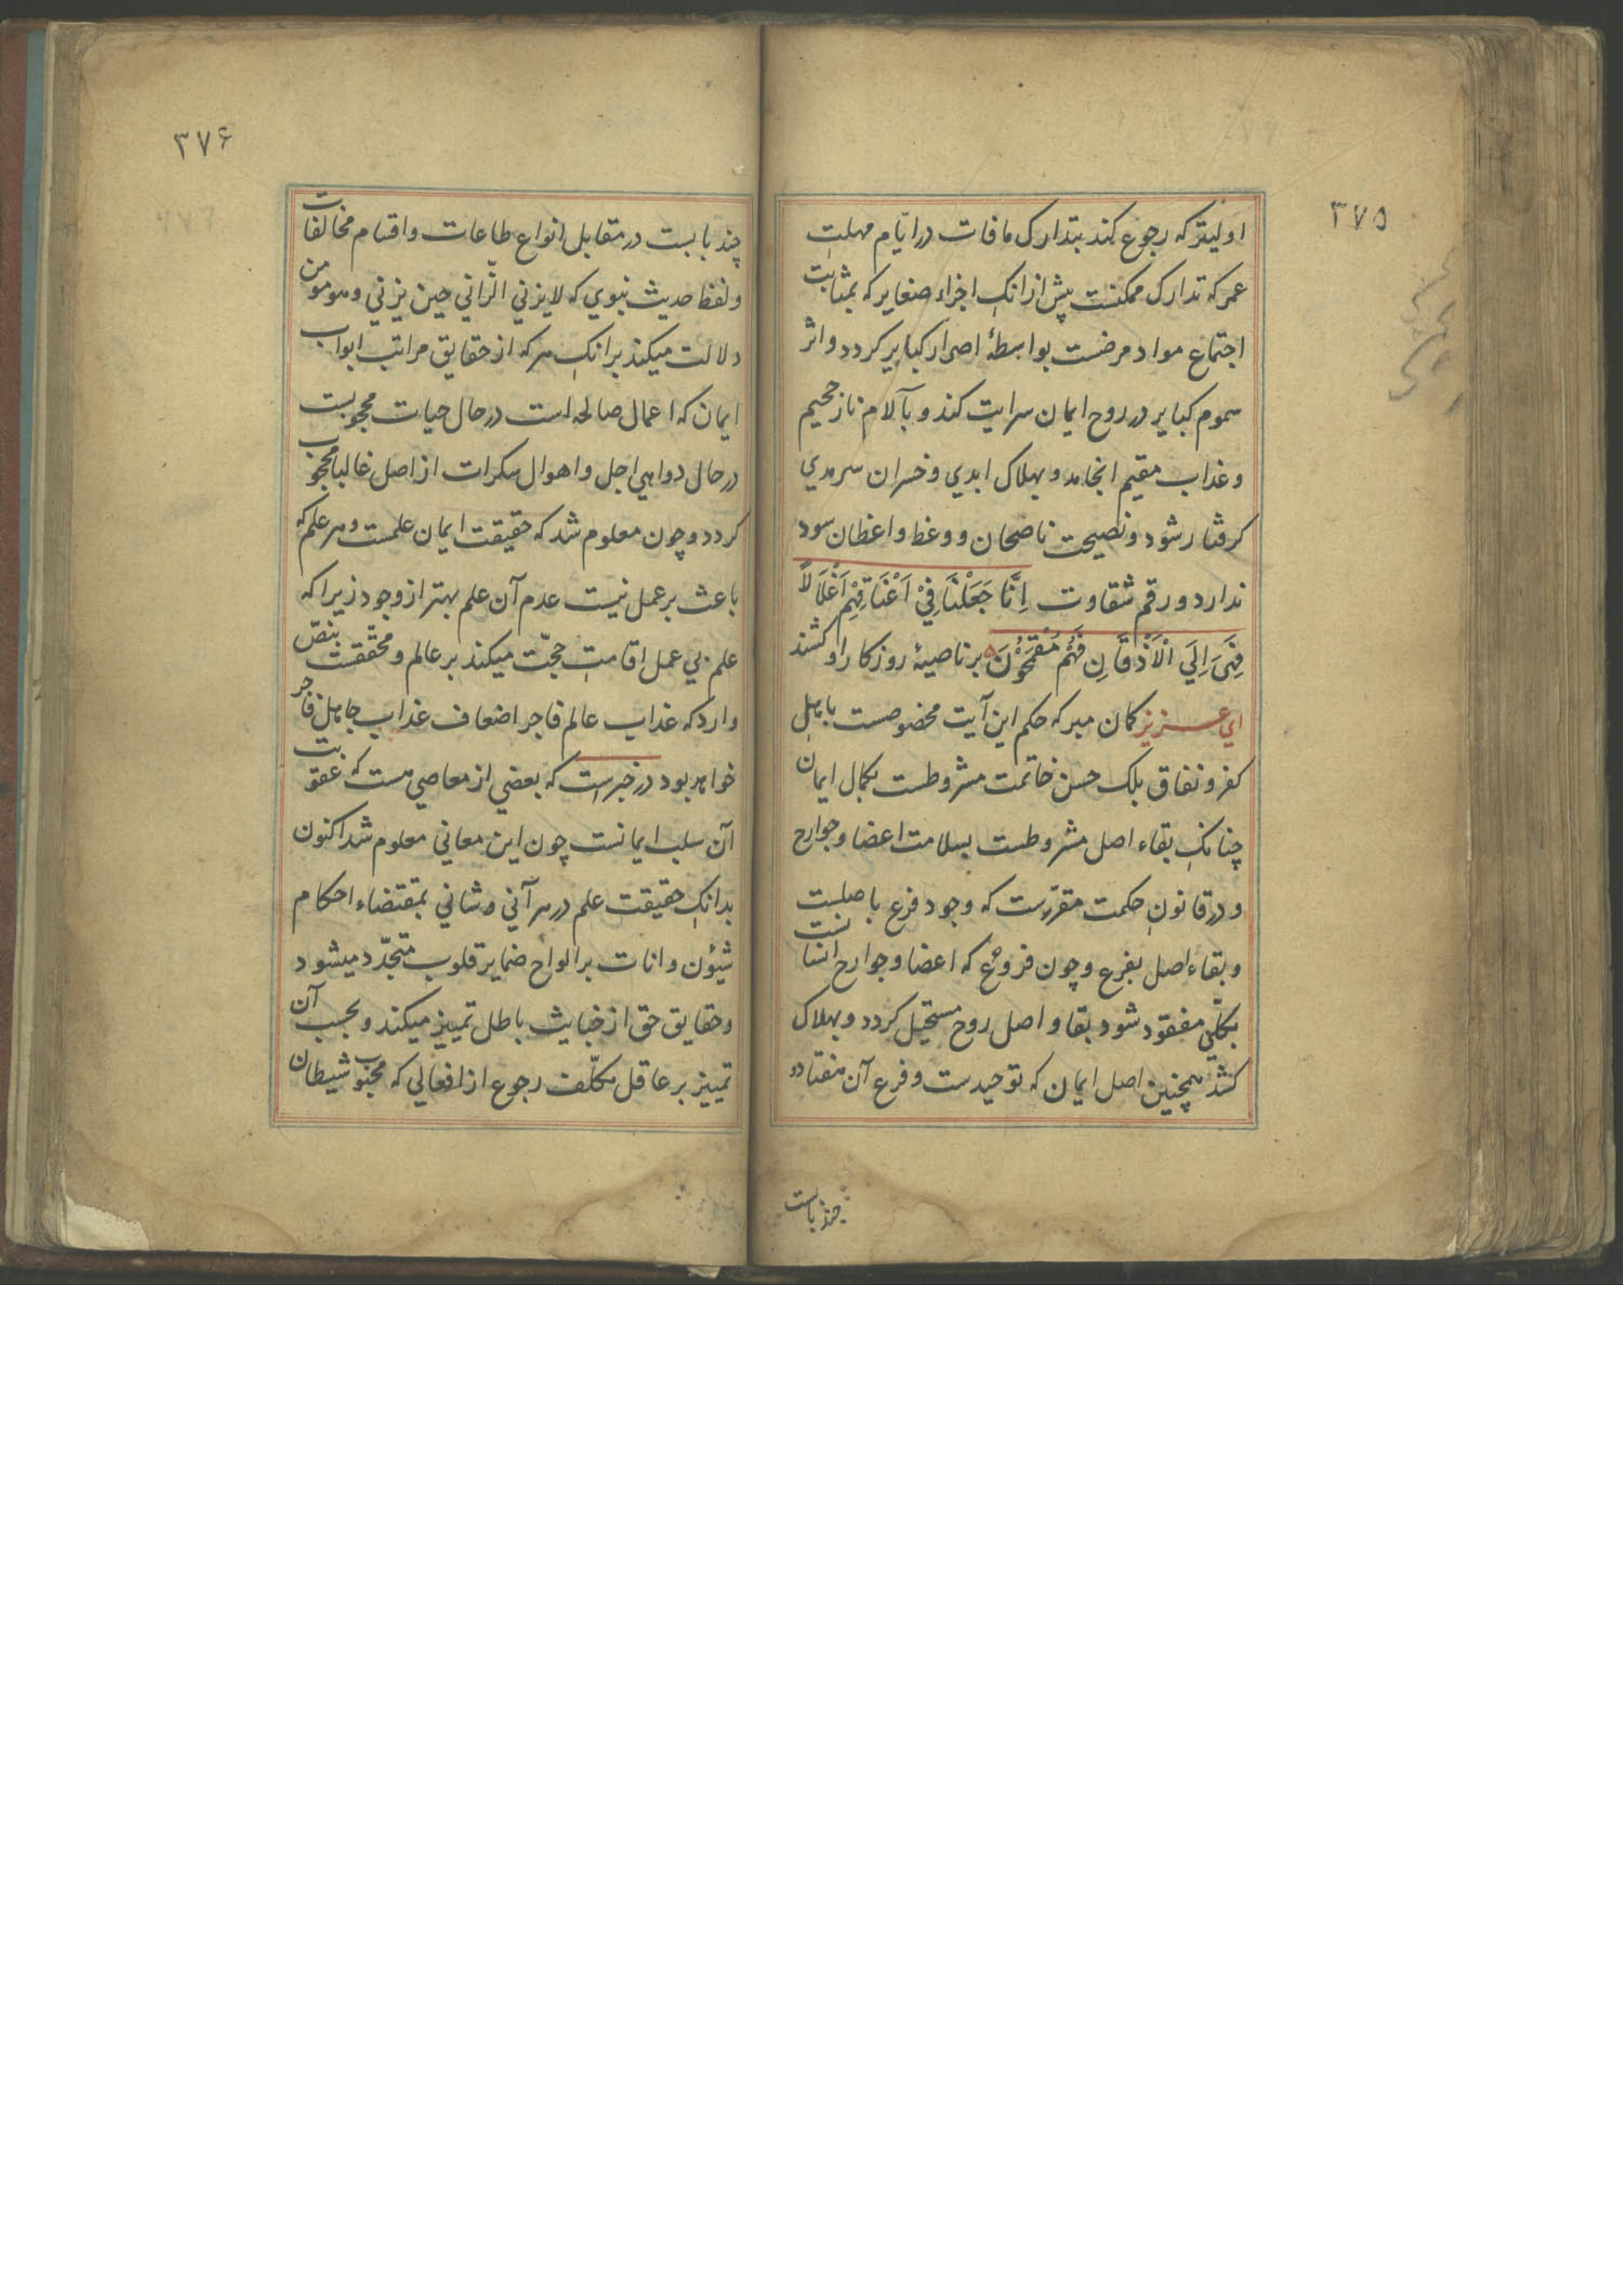 ۳۷۵
اولیتر که رجوع کند بتدارک مافات در ایّام مهلت
عمر که تدارک ممکنست پیش ازانک اجزاء صغایر که بمثابت
اجتماع مواد مرضست بواسطهٔ اصرار کبایر کردد و اثر
سموم کبایر در روح ایمان سرایت کند و بآلام نار جحیم
و عذاب مقیم انجامد و بهلاک ابدي و خسران سرمدي
کرفتار شود و نصیحت ناصحان و وعظ واعظان سود
ندارد و رقم شقاوت اِنَّا جَعَلْنَا فِيْ اَعْنَاقِهِمْ اَغْلَالًا
فَهِيَ اِلَي الْاَذْقَانِ فَهُمْ مُقْمَحُوْنَ بر ناصیهٔ روزکار او کشند
اي عزیز کمان مبر که حکم این آیت مخصوصست باهل
کفر و نفاق بلک حسن خاتمت مشروطست بکمال ایمان
چنانک بقاء اصل مشروطست بسلامت اعضا و جوارح
و در قانون حکمت مقرّرست که وجود فرع باصلست
و بقاء اصل بفرع و چون فروع که اعضا و جوارح انسانست
بکلّي مفقود شود بقاء اصل روح مستحیل کردد و بهلاک
کشد همچنین اصل ایمان که توحیدست و فرع آن هفتاد و
چند بابست
۳۷۶
چند بابست در مقابل انواع طاعات و اقسام مخالفات
و لفظ حدیث نبوي که لا یزني الزّاني حین یزني و هو مومن
دلالت میکند برانک هرکه از حقایق مراتب ابواب
ایمان که اعمال صالحه است در حال حیات محجوبست
در حال دواهي اجل و اهوال سکرات از اصل غالبا محجوب
کردد و چون معلوم شد که حقیقت ایمان علمست و هر علم که
باعث بر عمل نیست عدم آن علم بهتر از وجود زیرا که
علم بي عمل اقامت حجّت میکند بر عالم و محقّقست بنصّ
وارد که عذاب عالم فاجر اضعاف عذاب جاهل فاجر
خواهد بود در خبرست که بعضي از معاصي هست که عقوبت
آن سلب ایمانست چون این معاني معلوم شد اکنون
بدانک حقیقت علم در هر آني و شاني بمقتضاء احکام
شیؤن و انات بر الواح ضمایر قلوب متجدّد میشود
و حقایق حق از خبایث باطل تمییز میکند و بحسب آن
تمییز بر عاقل مکلّف رجوع از افعالي که محبوب شیطان